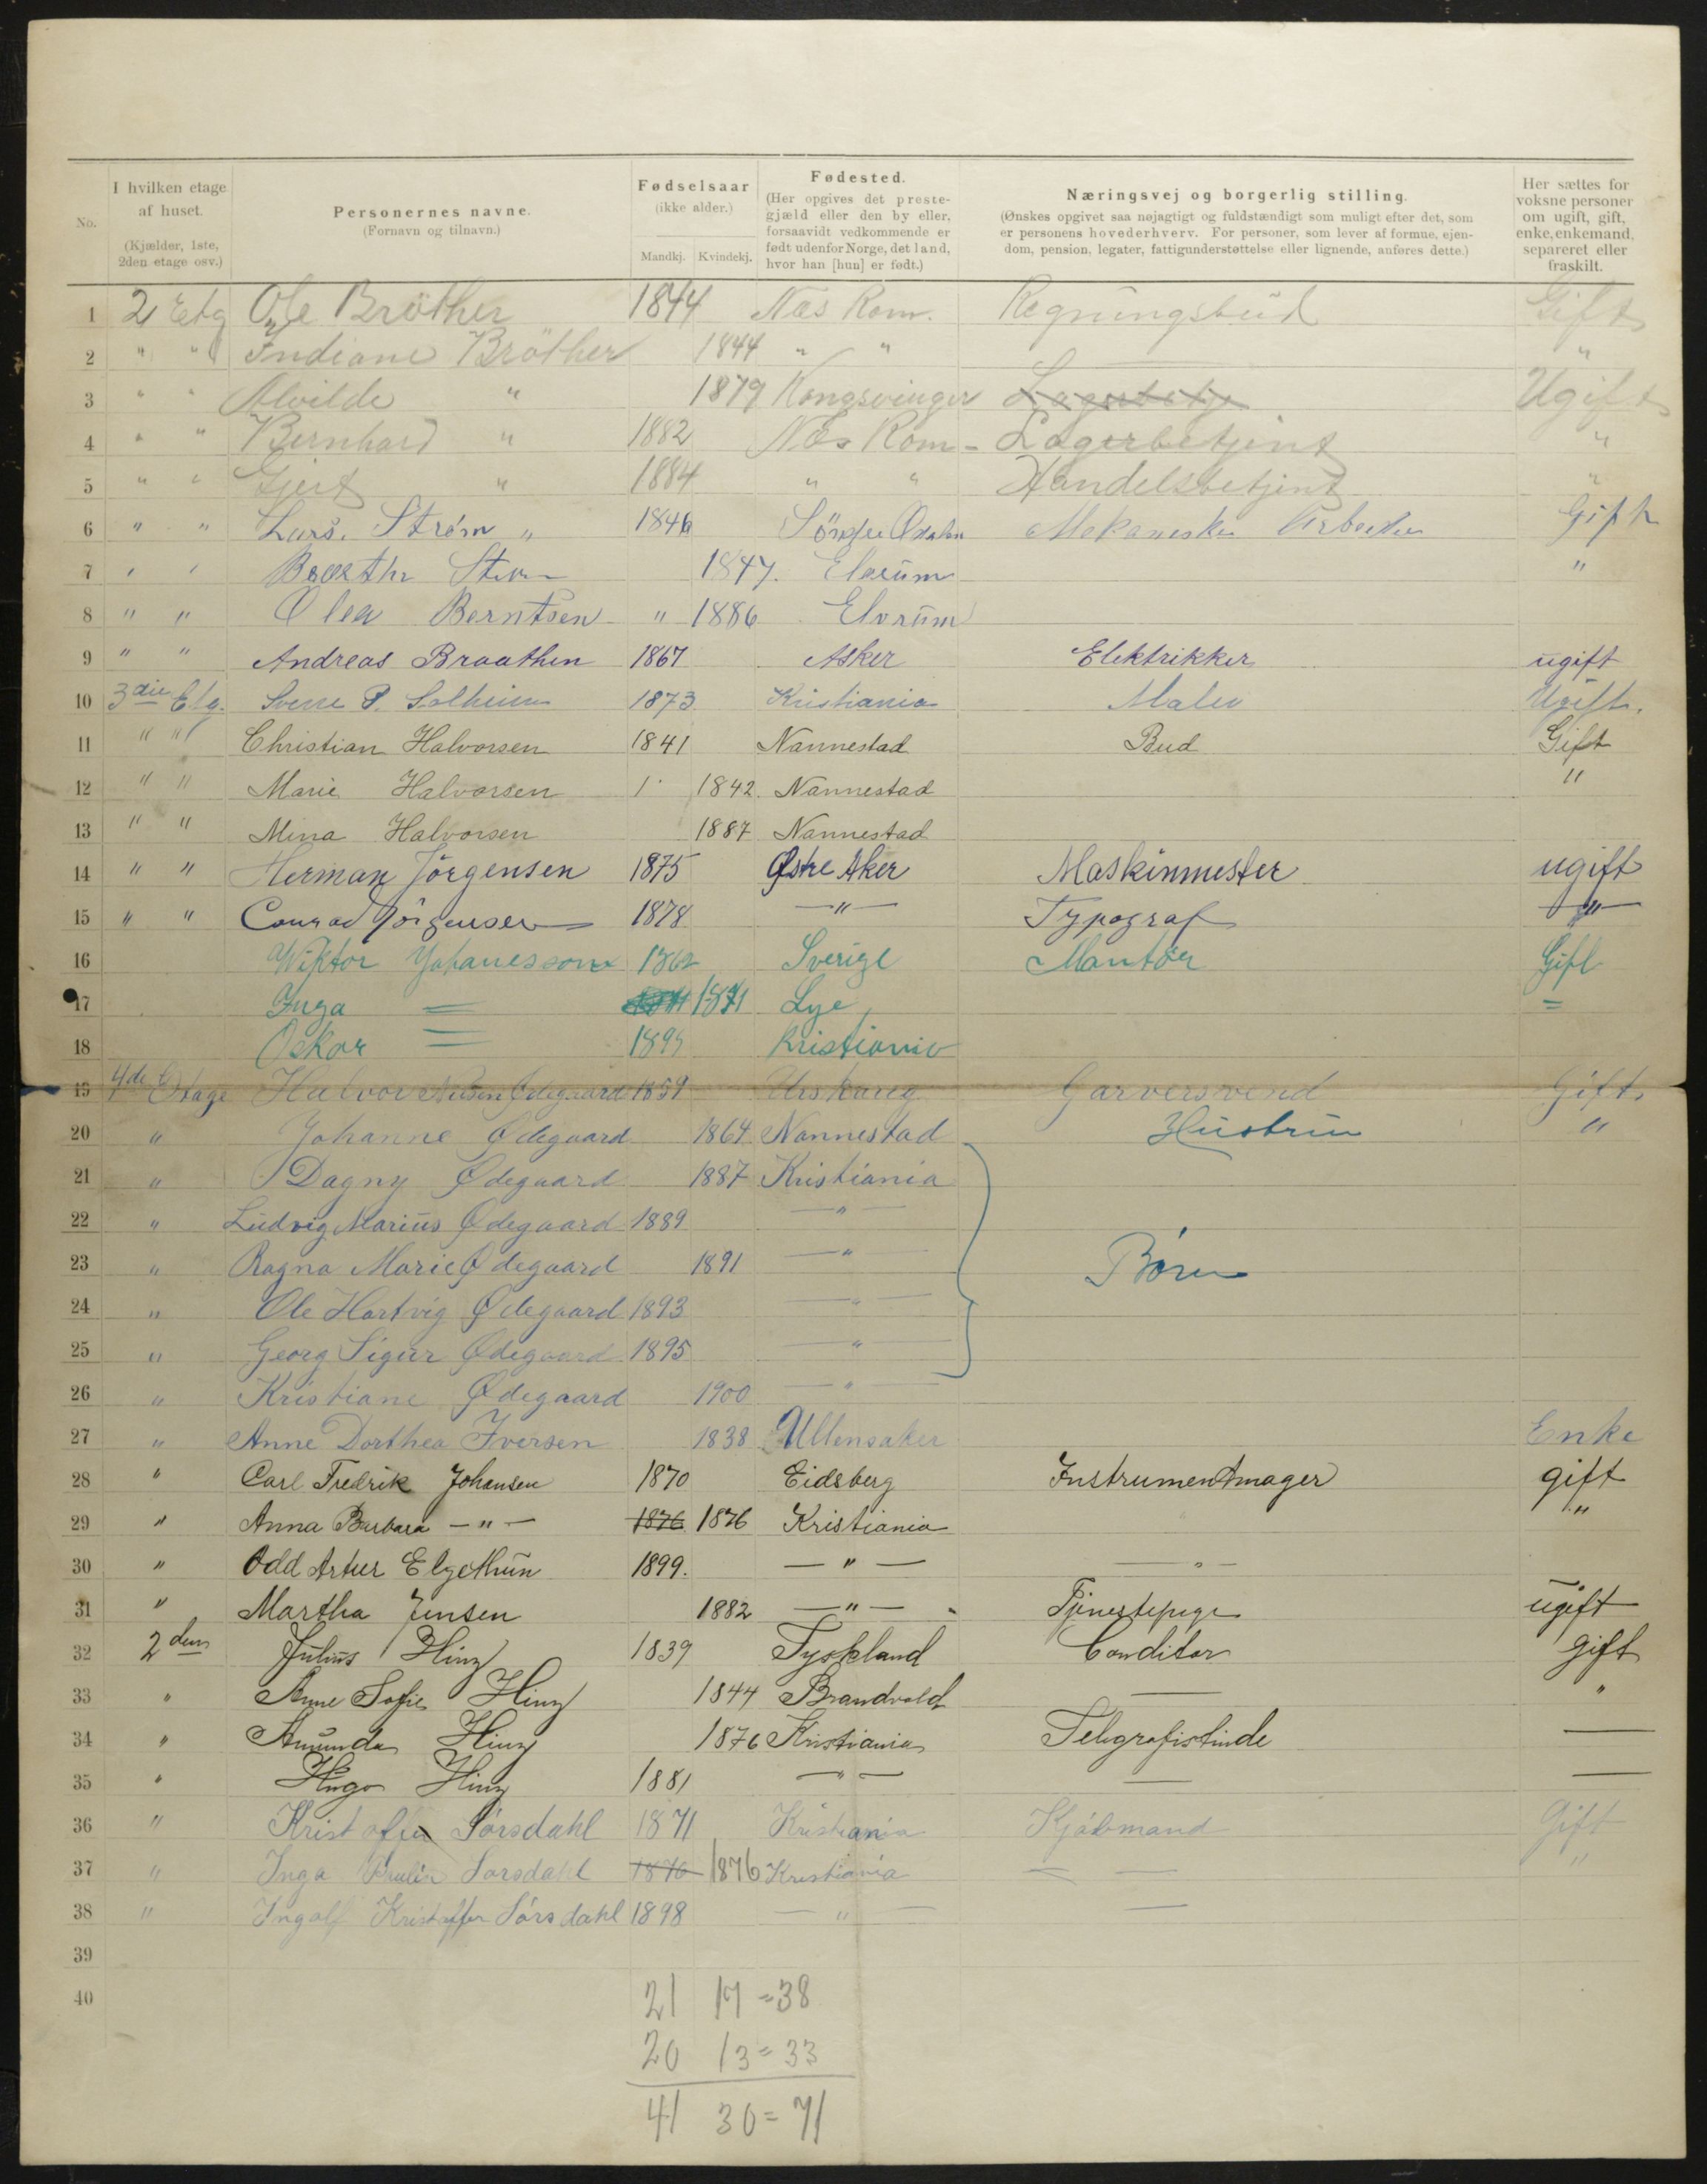 No.
I hvilken etage af huset.
(Kjælder, 1ste, 2den etage osv.)
Personernes navne.
(Fornavn og tilnavn.)
Fødselsaar
(ikke alder.)
Mandkj. Kvindekj.
Fødested.
(Her opgives det prestegjæld eller den by eller, forsaavidt vedkommende er født udenfor Norge, det land, hvor han [hun] er født.)
Næringsvej og borgerlig stilling.
(Ønskes opgivet saa nøjagtigt og fuldstændigt som muligt efter det, som er personens hovederhverv. For personer, som lever af formue, ejendom, pension, legater, fattigunderstøttelse eller lignende, anføres dette.)
Her sættes for voksne personer om ugift, gift, enke, enkemand, separeret eller fraskilt.
1 2 Etg Ole Bröther 1844 Næs Rom. Regningsbud Gift
2 " " Indiane Bröther 1844 " " "
3 " " Alvilde " 1879 Kongsvinger Ugift
4 " " Bernhard " 1882 Næs Rom - Lagerbetjent "
5 " " Gjert " 1884 " " Handelsbetjent "
6 " " Lars. Strøm " 1846 Søndre Mekaniske Arbeider Gift
7 " " 1847. Elverum "
8 " " Olea Berntsen " 1886 Elvrum
9 " " Andreas Braathen 1867 Asker Elektrikker ugift
10 3die Etg. P. Solheim 1873 Kristiania Maler Ugift.
11 " " Christian Halvorsen 1841 Nannestad Bud Gift
12 " " Marie Halvorsen 1842. Nannestad "
13 " " Mina Halvorsen 1887 Nannestad
14 " " Herman Jörgensen 1875 Østre Aker Maskinmester ugift
15 " " Conrad Jörgensen 1878 — " — Typograf — " —
16 Wiktor Johanesson 1862 Sverige Montør Gift
17 Inga = 1871 Lye =
18 Oskar = Kristiania
19 4de Etage Halvor Nilsen Ødegaard 1859 Urskaug Garversvend Gift
20 " Johanne Ødegaard 1864 Nannestad Hustru "
21 " Dagny Ødegaard 1887 Kristiania
22 " Ludvig Marius Ødegaard 1889 — " —
23 " Ragna Marie Ødegaard 1891 — " Børn
24 " Ole Hartvig Ødegaard 1893 — " —
25 " Georg Sigur Ødegaard 1895 — " —
26 " Kristiane Ødegaard 1900 — " —
27 " Anne Dorthea Iversen 1838 Ullensaker Enke
28 " Carl Fredrik Johansen 1870 Eidsberg Instrumentmager gift
29 " Anna Barbara — " — 1876 1876 Kristiania "
30 " Odd Artur Elgethun 1899. — " — — " —
31 " Martha Jensen 1882 — " — Tjenestepige ugift
32 2den Julius Hinz 1839 Tyskland Conditor Gift
33 " Anne Sofie Hinz 1844 Brandvold — "
34 " Amunda Hinz 1876 Kristiania Telegrafistinde —
35 " Hugo Hinz 1881 — " — — —
36 " Kristoffer Sørsdahl 1871 Kristiania Kjøbmand Gift
37 " Inga Sørsdahl 1876 1876 Kristiania — — "
38 " Ingolf Kristoffer Sørsdahl 1898 — " — —
39
40
21 17 = 38
20 13 = 33
41 30 = 71